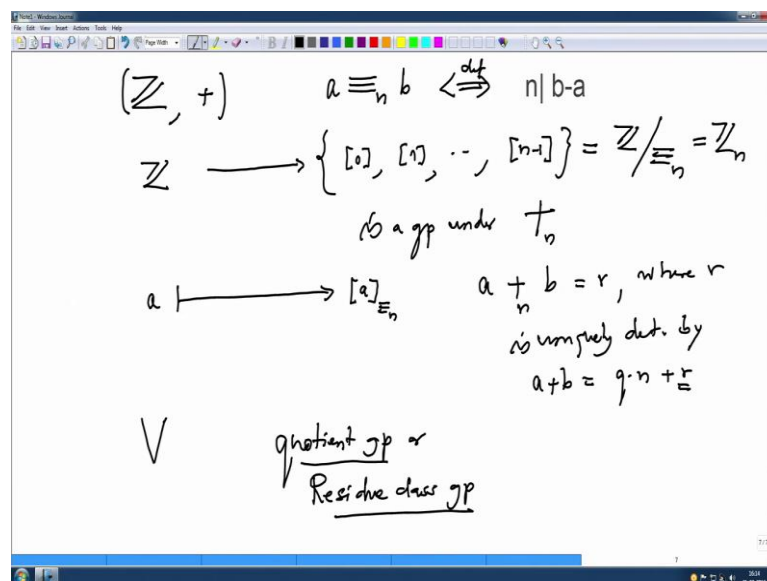 Note1 - Windows Journal
File Edit View Insert Actions Tools Help
Page Width
(ℤ, +) a ≡ₙ b ⟺ def n| b-a
ℤ ⟶ { [0], [1], .., [n-1] } = ℤ/≡ₙ = ℤₙ
is a gp under +ₙ
a ⟼ [a]≡ₙ a +ₙ b = r, where r
is uniquely det. by
a+b = q·n + r
V quotient gp or
Residue class gp
7
16:14